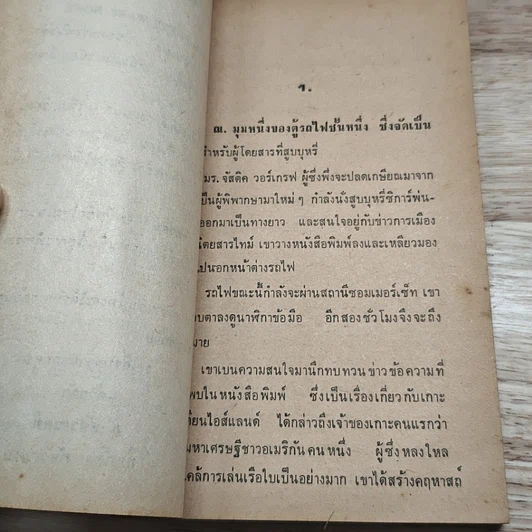 ๑.
ณ. มุมหนึ่งของตู้รถไฟชั้นหนึ่ง ซึ่งจัดเป็น
สำหรับผู้โดยสารที่สูบบุหรี่
มร. จัสติค วอร์เกรฟ ผู้ซึ่งพึ่งจะปลดเกษียณมาจาก
เป็นผู้พิพากษามาใหม่ๆ กำลังนั่งสูบบุหรี่ซิการ์พ่น-
ออกมาเป็นทางยาว และสนใจอยู่กับข่าวการเมือง
โดยสารไทม์ เขาวางหนังสือพิมพ์ลงและเหลียวมอง
ไปนอกหน้าต่างรถไฟ
รถไฟขณะนี้กำลังจะผ่านสถานีซอมเมอร์เซ็ท เขา
บตาลงดูนาฬิกาข้อมือ อีกสองชั่วโมงจึงจะถึง
มาย
เขาเบนความสนใจมานึกทบทวนข่าวข้อความที่
พบในหนังสือพิมพ์ ซึ่งเป็นเรื่องเกี่ยวกับเกาะ
ดี้ยนไอส์แลนด์ ได้กล่าวถึงเจ้าของเกาะคนแรกว่า
มหาเศรษฐีชาวอเมริกันคนหนึ่ง ผู้ซึ่งหลงใหล
คล้การเล่นเรือใบเป็นอย่างมาก เขาได้สร้างคฤหาสถ์